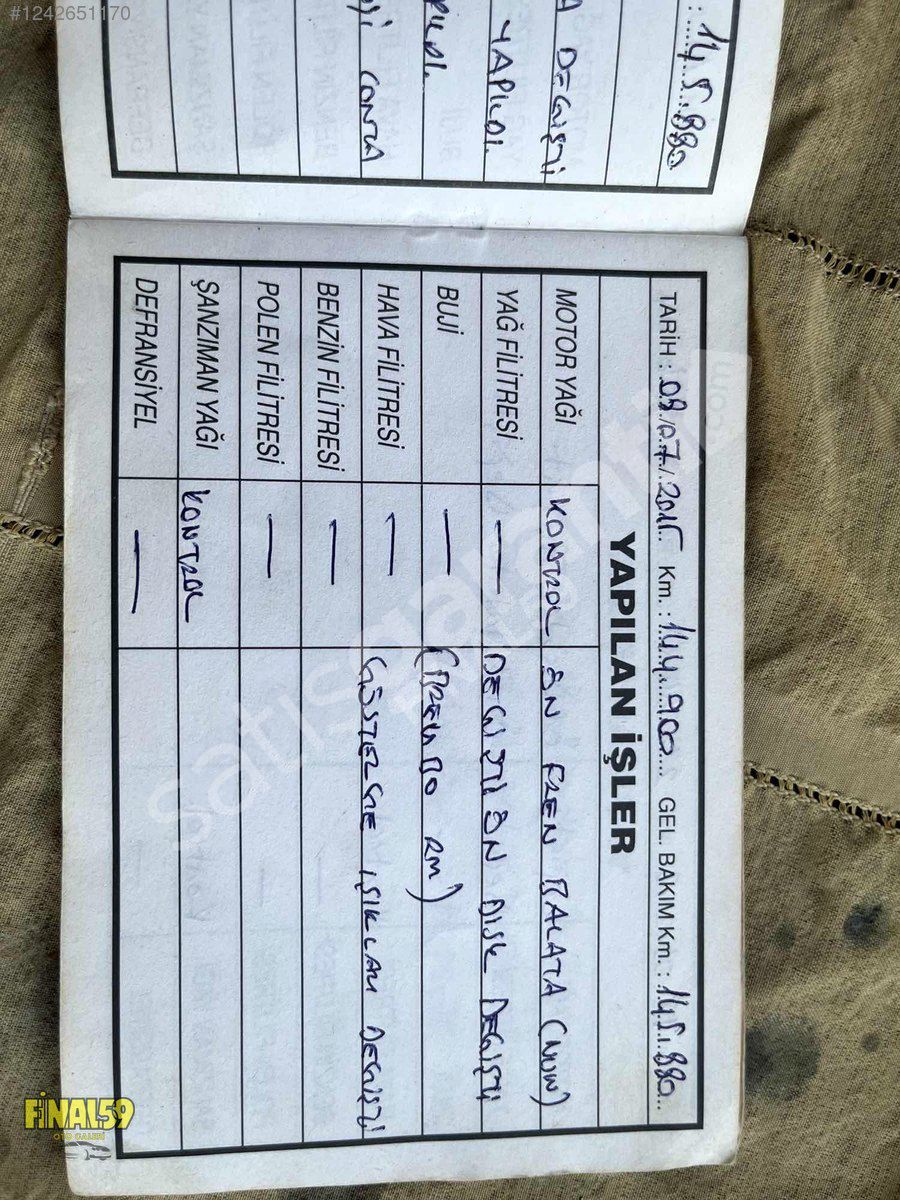 #1242651170
: 14.5.880
A DEĞİŞTİ
YAPILDI.
CONTA
TARİH : 08.07.2015 Km. : 144.900 GEL. BAKIM Km. : 145.880
YAPILAN İŞLER
MOTOR YAĞI KONTROL ÖN FREN BALATA (NWW)
YAĞ FİLİTRESİ — DEĞİŞTİ ÖN DISK DEĞİŞTİ
BUJİ — (BREMBO RM)
HAVA FİLİTRESİ — GÖSTERGE IŞIKLARI DEĞİŞTİ
BENZİN FİLİTRESİ —
POLEN FİLİTRESİ —
ŞANZIMAN YAĞI KONTROL
DEFRANSİYEL —
FİNAL59
OTO GALERİ